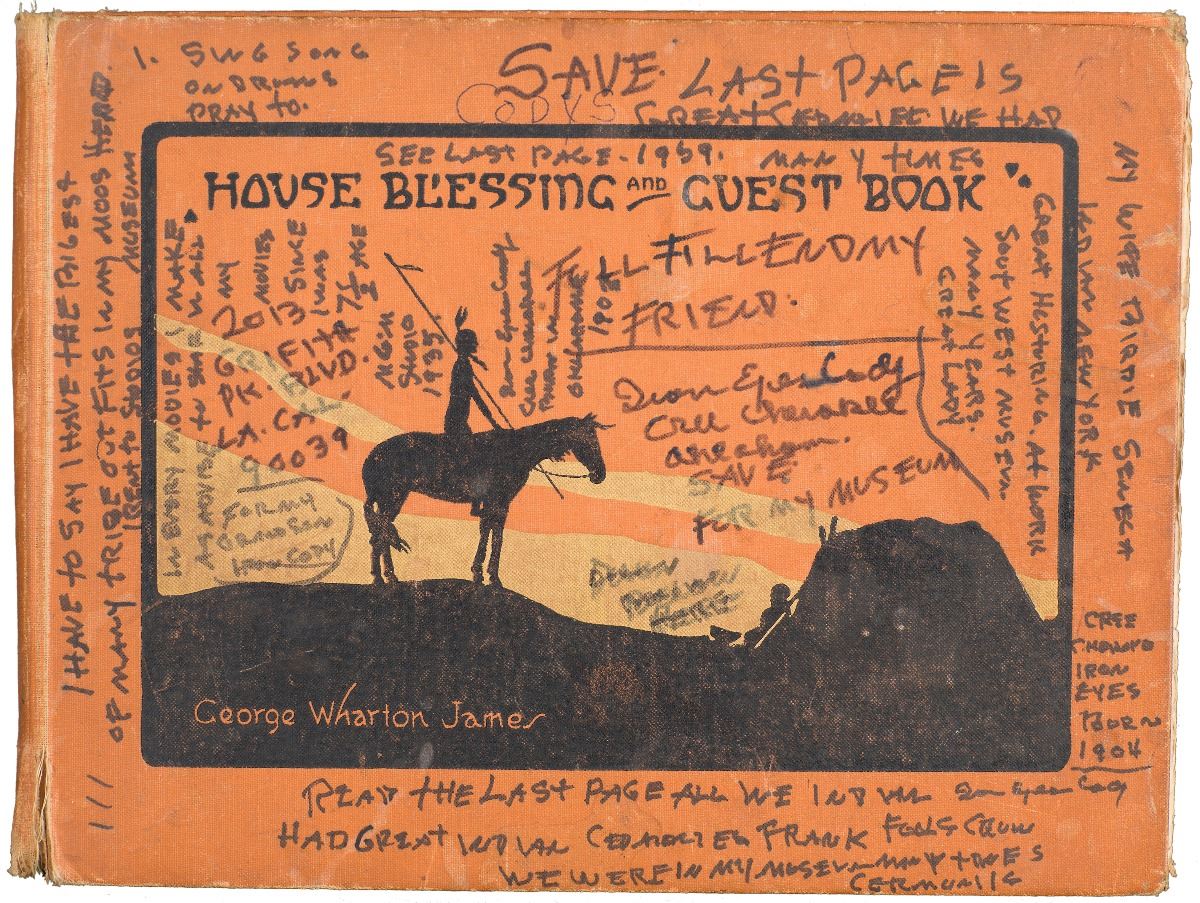 1. SING SONG
ON DRUMS
PRAY TO.
SAVE. LAST PAGE IS
CODYS
GREAT WE HAD
SEE LAST PAGE. 1969. MANY TIMES
HOUSE BLESSING AND GUEST BOOK
I HAVE TO SAY I HAVE THE BIGEST
OF MANY TRIBE OUT FITS IN MY MOOS HERD.
I RENT TO STUDIOS MUSEUM
IN EVERY MOVIES I MAKE
AS ADVISE to ALL
2 MY
MOVIES
2013 SINCE
I WAS
7½ AGE
GRIFFITH
PK. BLVD.
LA. CAL
90039
FOR MY
GRANDSON
CODY
MGM
STUDIO
1935.
Iron Eyes Cody
Cree Cherokee
OKLAHOMA
1904
FULL FILLEND MY
FRIEND.
Iron Eyes Cody
Cree Cherokee
SAVE
FOR MY MUSEUM
MY WIFE BIRDIE SENECA
INDIAN NEW YORK
GREAT HISTORING. AT WORK
SOUT WEST MUSEUM
MANY YEARS.
GREAT LADY
George Wharton James
CREE
IRON
EYES
BORN
1904
111
READ tHE LAST PAGE ALL WE INDIAN Iron Eyes Cody
HAD GREAT INDIAN FRANK FOOLS CROW
WE WERE IN MY MUSEUM MANY tIMES